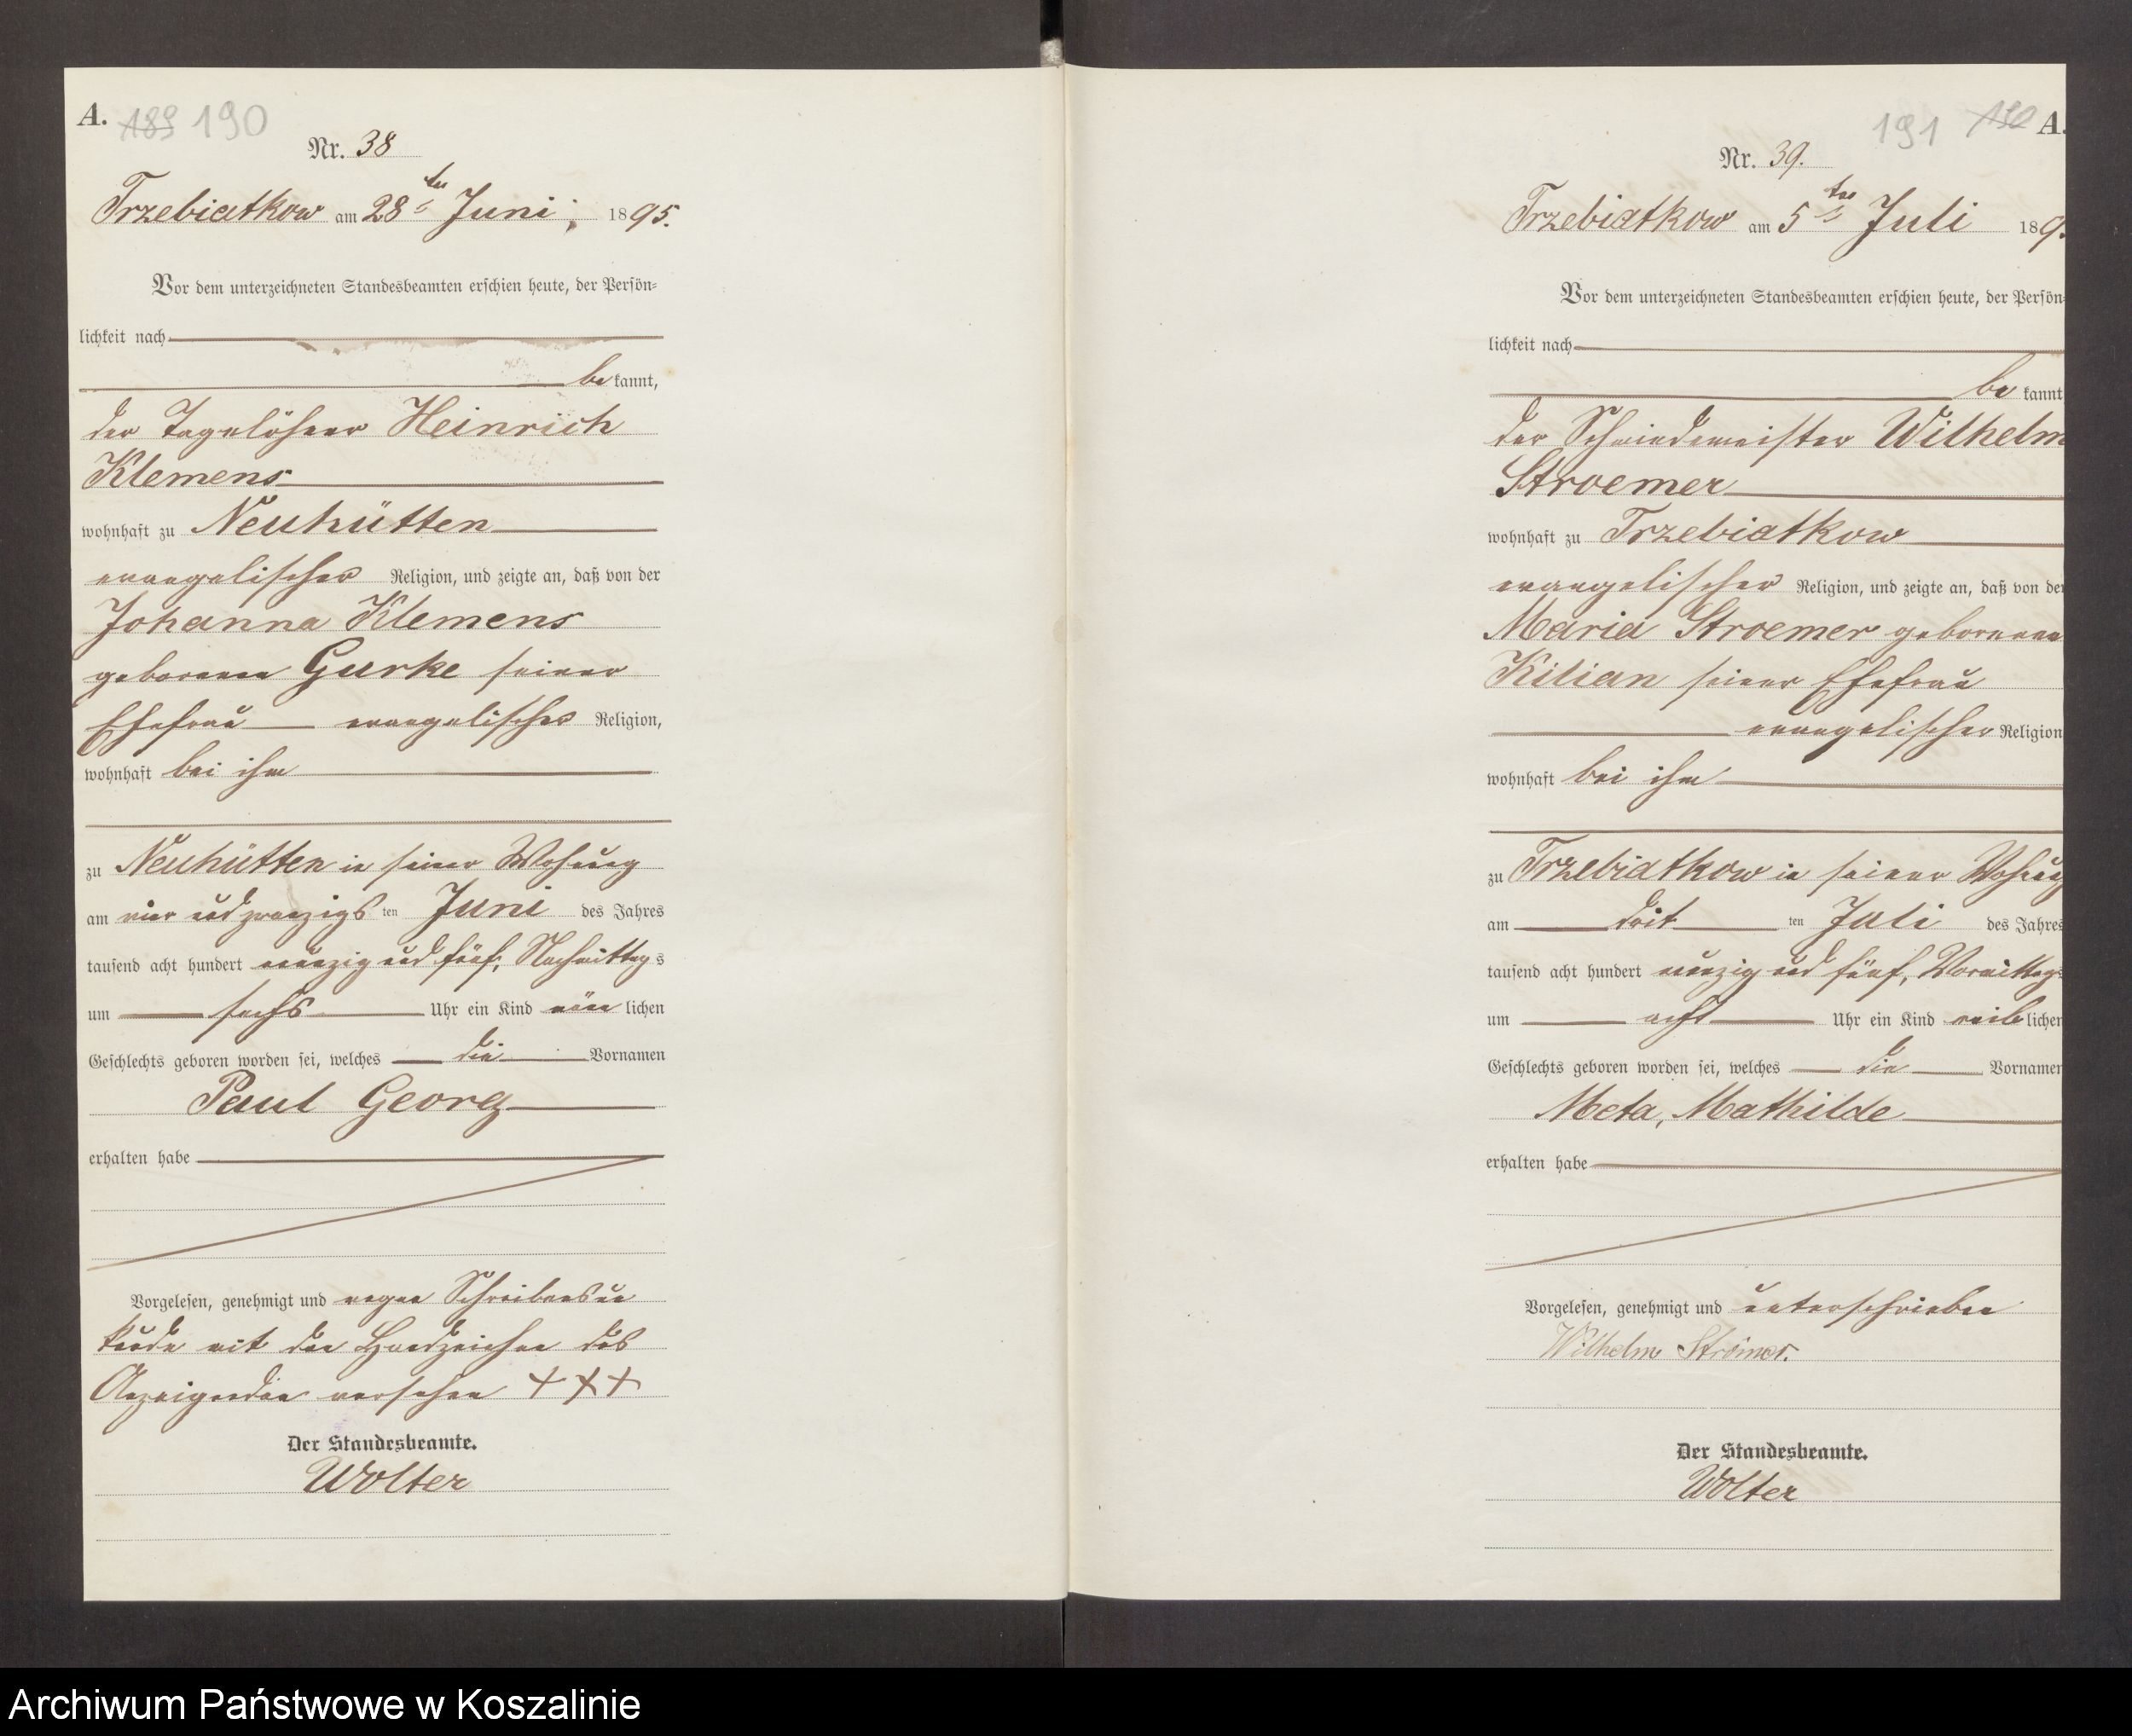 A. 189 190
Nr. 38
Trzebiatkow am 28ten Juni 1895.
Vor dem unterzeichneten Standesbeamten erschien heute, der Persön-
lichkeit nach
be kannt,
der Tagelöhner Heinrich
Klemens
wohnhaft zu Neuhütten
evangelischer Religion, und zeigte an, daß von der
Johanna Klemens
geborenen Gurke seiner
Ehefrau evangelischer Religion,
wohnhaft bei ihm
zu Neuhütten in seiner Wohnung
am vier und zwanzigsten Juni des Jahres
tausend acht hundert neunzig und fünf, Nachmittags
um sechs Uhr ein Kind männlichen
Geschlechts geboren worden sei, welches die Vornamen
Paul Georg
erhalten habe
Vorgelesen, genehmigt und wegen Schreibensun
kunde mit den Handzeichen des
Anzeigenden versehen + + +
Der Standesbeamte.
Wolter
191 190 A.
Nr. 39.
Trzebiatkow am 5ten Juli 189
Vor dem unterzeichneten Standesbeamten erschien heute, der Persön-
lichkeit nach
be kannt
der Schmiedemeister Wilhelm
Stroemer
wohnhaft zu Trzebiatkow
evangelischer Religion, und zeigte an, daß von der
Maria Stroemer geborenen
Kilian seiner Ehefrau
evangelischer Religion
wohnhaft bei ihm
zu Trzebiatkow in seiner Wohnung
am drit ten Juli des Jahres
tausend acht hundert neunzig und fünf, Vormittags
um acht Uhr ein Kind weiblichen
Geschlechts geboren worden sei, welches die Vornamen
Meta, Mathilde
erhalten habe
Vorgelesen, genehmigt und unterschrieben
Wilhelm Strömer.
Der Standesbeamte.
Wolter
Archiwum Państwowe w Koszalinie